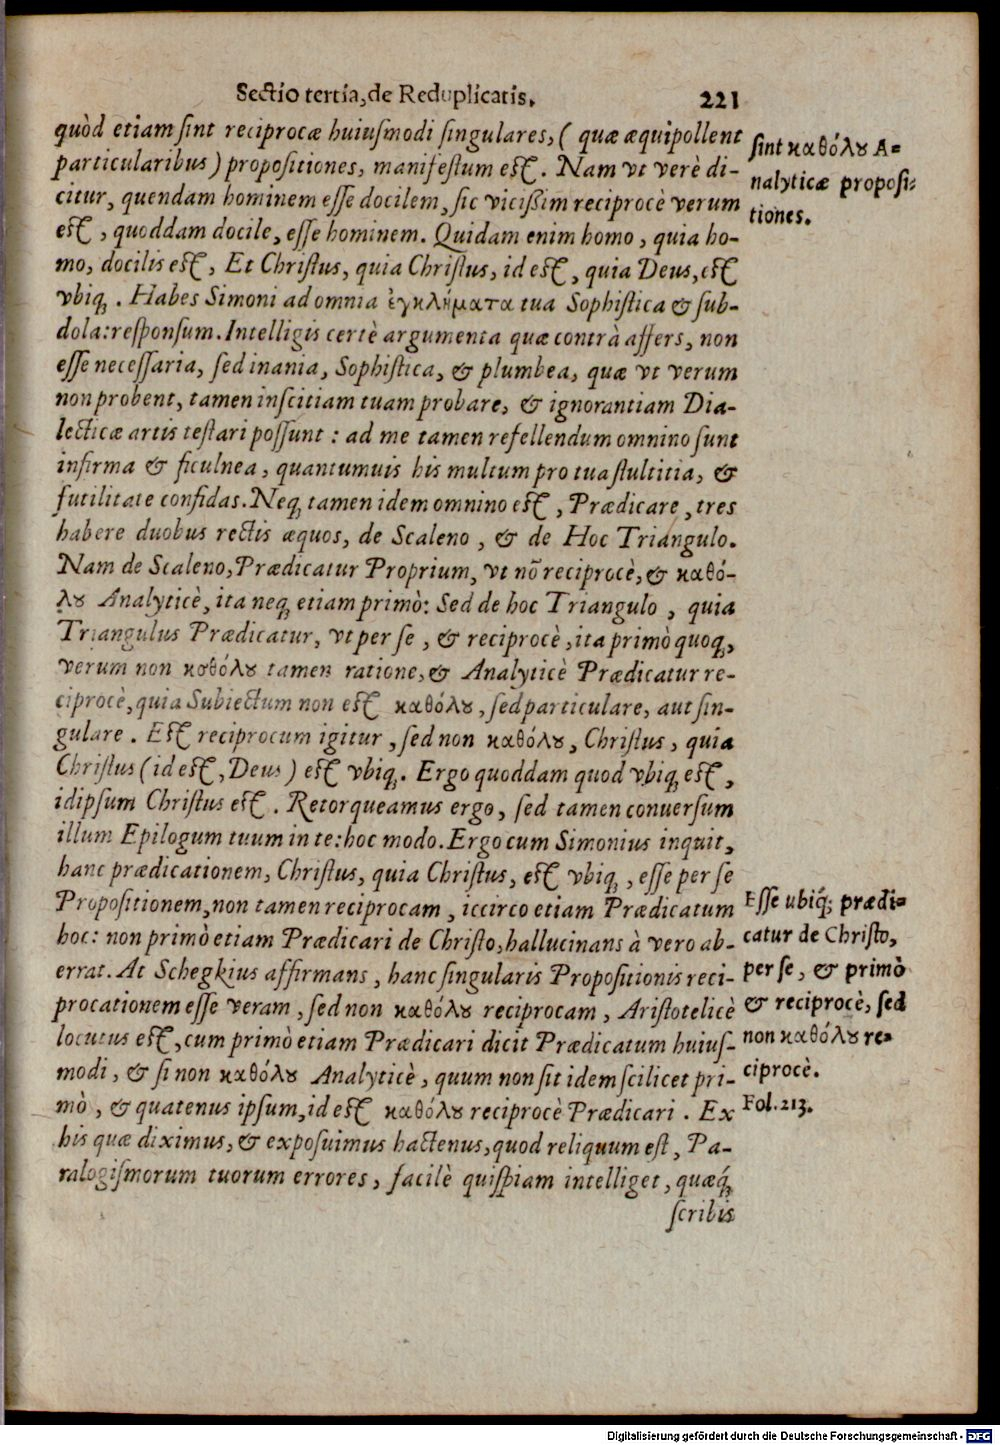 Sectio tertia, de Reduplicatis. 221
quòd etiam sint reciprocæ huiusmodi singulares, ( quæ æquipollent
particularibus ) propositiones, manifestum est. Nam vt verè di-
citur, quendam hominem esse docilem, sic vicißim reciprocè verum
est, quoddam docile, esse hominem. Quidam enim homo, quia ho-
mo, docilis est, Et Christus, quia Christus, id est, quia Deus, est
vbiq́. Habes Simoni ad omnia ἐγκλήματα tua Sophistica & sub-
dola: responsum. Intelligis certè argumenta quæ contrà affers, non
esse necessaria, sed inania, Sophistica, & plumbea, quæ vt verum
non probent, tamen inscitiam tuam probare, & ignorantiam Dia-
lecticæ artis testari possunt : ad me tamen refellendum omnino sunt
infirma & ficulnea, quantumuis his multum pro tua stultitia, &
futilitate confidas. Neq́ tamen idem omnino est, Prædicare, tres
habere duobus rectis æquos, de Scaleno, & de Hoc Triangulo.
Nam de Scaleno, Prædicatur Proprium, vt nõ reciprocè, & καθό-
λȣ Analyticè, ita neq́ etiam primò: Sed de hoc Triangulo, quia
Triangulus Prædicatur, vt per se, & reciprocè, ita primò quoq́,
verum non καθόλȣ tamen ratione, & Analyticè Prædicatur re-
ciprocè, quia Subiectum non est καθόλȣ, sed particulare, aut sin-
gulare. Est reciprocum igitur, sed non καθόλȣ, Christus, quia
Christus (id est, Deus) est vbiq́. Ergo quoddam quod vbiq́ est,
idipsum Christus est. Retorqueamus ergo, sed tamen conuersum
illum Epilogum tuum in te: hoc modo. Ergo cum Simonius inquit,
hanc prædicationem, Christus, quia Christus, est vbiq́, esse per se
Propositionem, non tamen reciprocam, iccirco etiam Prædicatum
hoc: non primò etiam Prædicari de Christo, hallucinans à vero ab-
errat. At Schegkius affirmans, hanc singularis Propositionis reci-
procationem esse veram, sed non καθόλȣ reciprocam, Aristotelicè
locutus est, cum primò etiam Prædicari dicit Prædicatum huius-
modi, & si non καθόλȣ Analyticè, quum non sit idem scilicet pri-
mò, & quatenus ipsum, id est καθόλȣ reciprocè Prædicari. Ex
his quæ diximus, & exposuimus hactenus, quod reliquum est, Pa-
ralogismorum tuorum errores, facilè quispiam intelliget, quæq́
scribis
sint καθόλȣ A=
nalyticæ proposi=
tiones.
Esse ubiq́; prædi=
catur de Christo,
per se, & primò
& reciprocè, sed
non καθόλȣ re=
ciprocè.
Fol. 213.
Digitalisierung gefördert durch die Deutsche Forschungsgemeinschaft - DFG